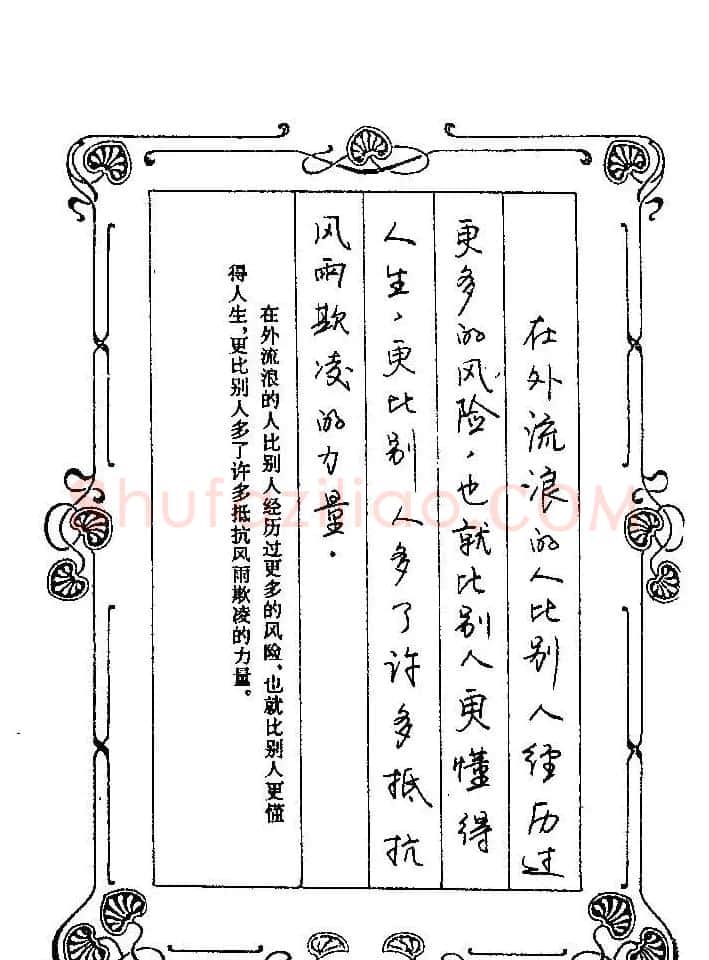 在外流浪的人比别人经历过
更多的风险，也就比别人更懂得
人生，更比别人多了许多抵抗
风雨欺凌的力量．
在外流浪的人比别人经历过更多的风险，也就比别人更懂
得人生，更比别人多了许多抵抗风雨欺凌的力量。
Shufaziliao.COM